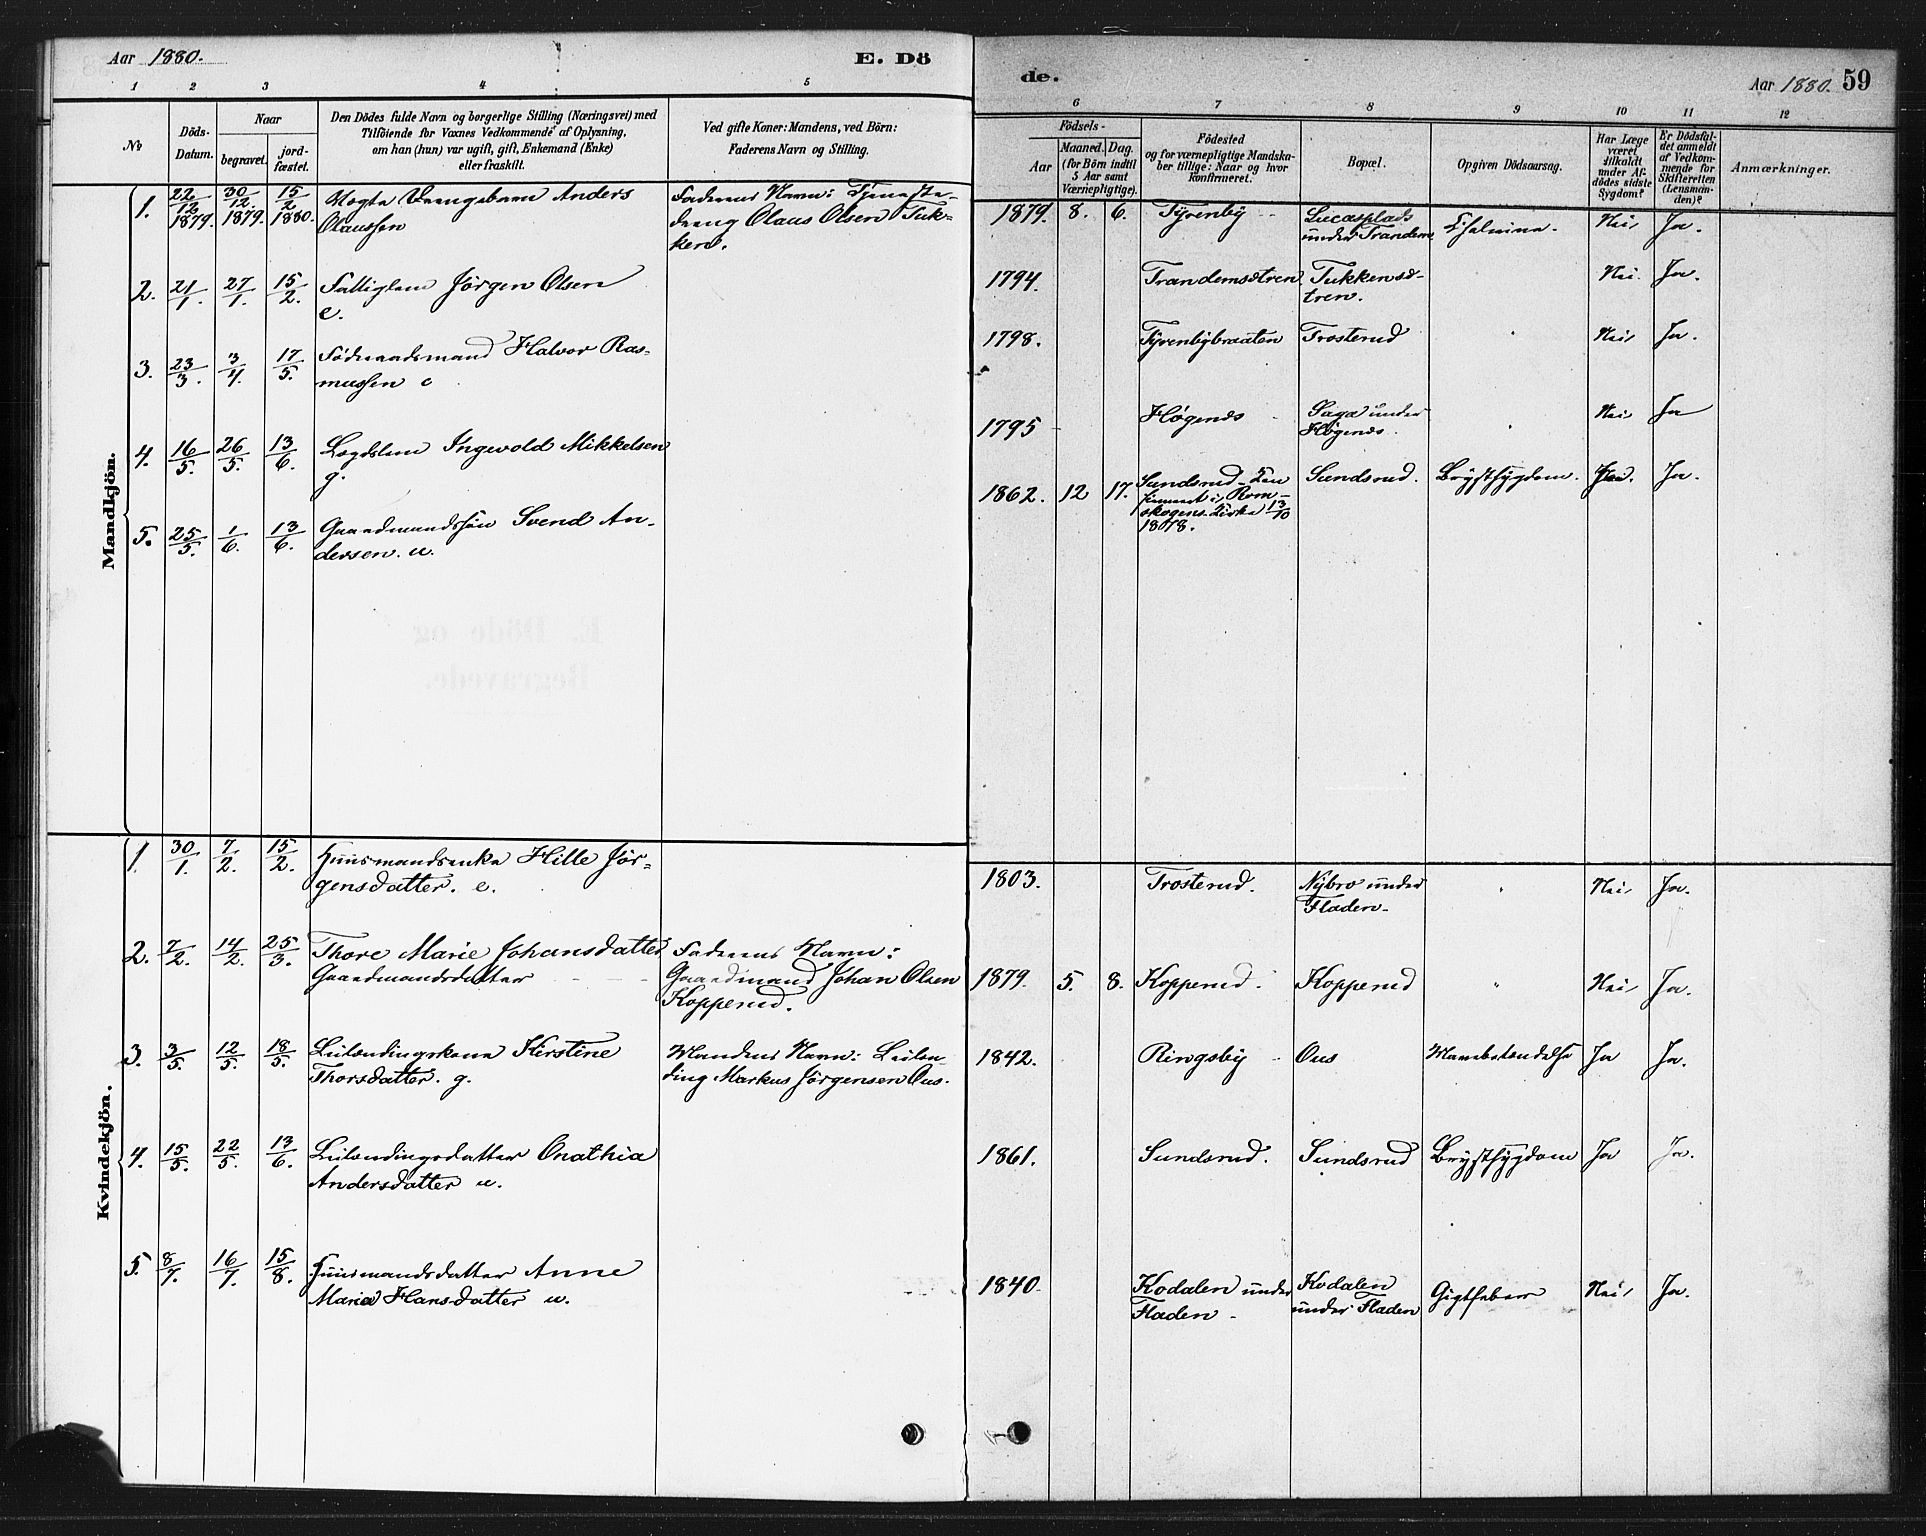 Aar 1880.
E. Dö
1 2 3 4 5
№
Döds-
Datum.
Naar
begravet.
jord-
fæstet.
Den Dödes fulde Navn og borgerlige Stilling (Næringsvei) med
Tilföiende for Voxnes Vedkommende af Oplysning,
om han (hun) var ugift, gift, Enkemand (Enke)
eller fraskilt.
Ved gifte Koner: Mandens, ved Börn:
Faderens Navn og Stilling.
de.
Aar 1880. 59
6 7 8 9 10 11 12
Födsels-
Aar
Maaned. Dag.
(for Börn indtil
5 Aar samt
Værnepligtige).
Födested
og for værnepligtige Mandska-
ber tillige: Naar og hvor
konfirmeret.
Bopæl.
Opgiven Dödsaarsag.
Har Læge
været
tilkaldt
under Af-
dödes sidste
Sygdom?
Er Dödsfal-
det anmeldt
af Vedkom-
mende for
Skifteretten
(Lensman-
den)?
Anmærkninger.
Mandkjön.
1. 22/12 1879. 30/12 1879. 15/2 1880. Uægte Drengebarn Anders
Olaussen
Faderens Navn: Tjeneste-
dreng Olaus Olsen Tuk-
ken.
1879. 8. 6. Tyrenby Lucasplads
under Trandem Nei, Ja.
2. 21/1. 27/1. 15/2. Fattiglem Jörgen Olsen
e.
1794. Trandemsætren Tukkensæ-
tren. Nei. Ja.
3. 23/3. 3/4. 17/5. Föderaadsmand Halvor Ras-
mussen e
1798. Tyrenbybraaten Trosterud Nei, Ja.
4. 16/5. 26/5. 13/6. Lægdslem Ingevold Mikkelsen
g.
1795 Högenæs Saga under
Högenæs. Nei, Ja
5. 25/5. 1/6. 13/6. Gaardmandssön Svend An-
dersen. u.
1862. 12 17. Sundsrud. Kon
firmeret i Rom-
skogens Kirke 13/10
1878.
Sundsrud. Brystsygdom. Ja. Ja.
Kvindekjön.
1. 30/1. 7/2. 15/2. Huusmandsenke Hille Jör-
gensdatter. e.
1803. Trosterud. Nybro under
Fladen. Nei, Ja.
2. 7/2. 14/2. 25/3. Thore Marie Johansdatter
Gaardmandsdatter
Faderens Navn:
Gaardmand Johan Olsen
Kopperud.
1879. 5. 8. Kopperud. Kopperud " Nei, Ja.
3. 3/5. 12/5. 18/5. Leilændingskone Kirstine
Thorsdatter. g.
Mandens Navn: Leilæn-
ding Markus Jörgensen Ous.
1842. Ringsby Ous Ja Ja.
4. 15/5. 22/5. 13/6. Leilændingsdatter Onathia
Andersdatter u.
1861. Sundsrud. Sundsrud Brystsygdom Ja Ja.
5. 8/7. 16/7. 15/8. Huusmandsdatter Anne
Maria Hansdatter u.
1840. Kodalen under
Fladen. Kodalen
under Fladen Gigtfeber Nei, Ja.